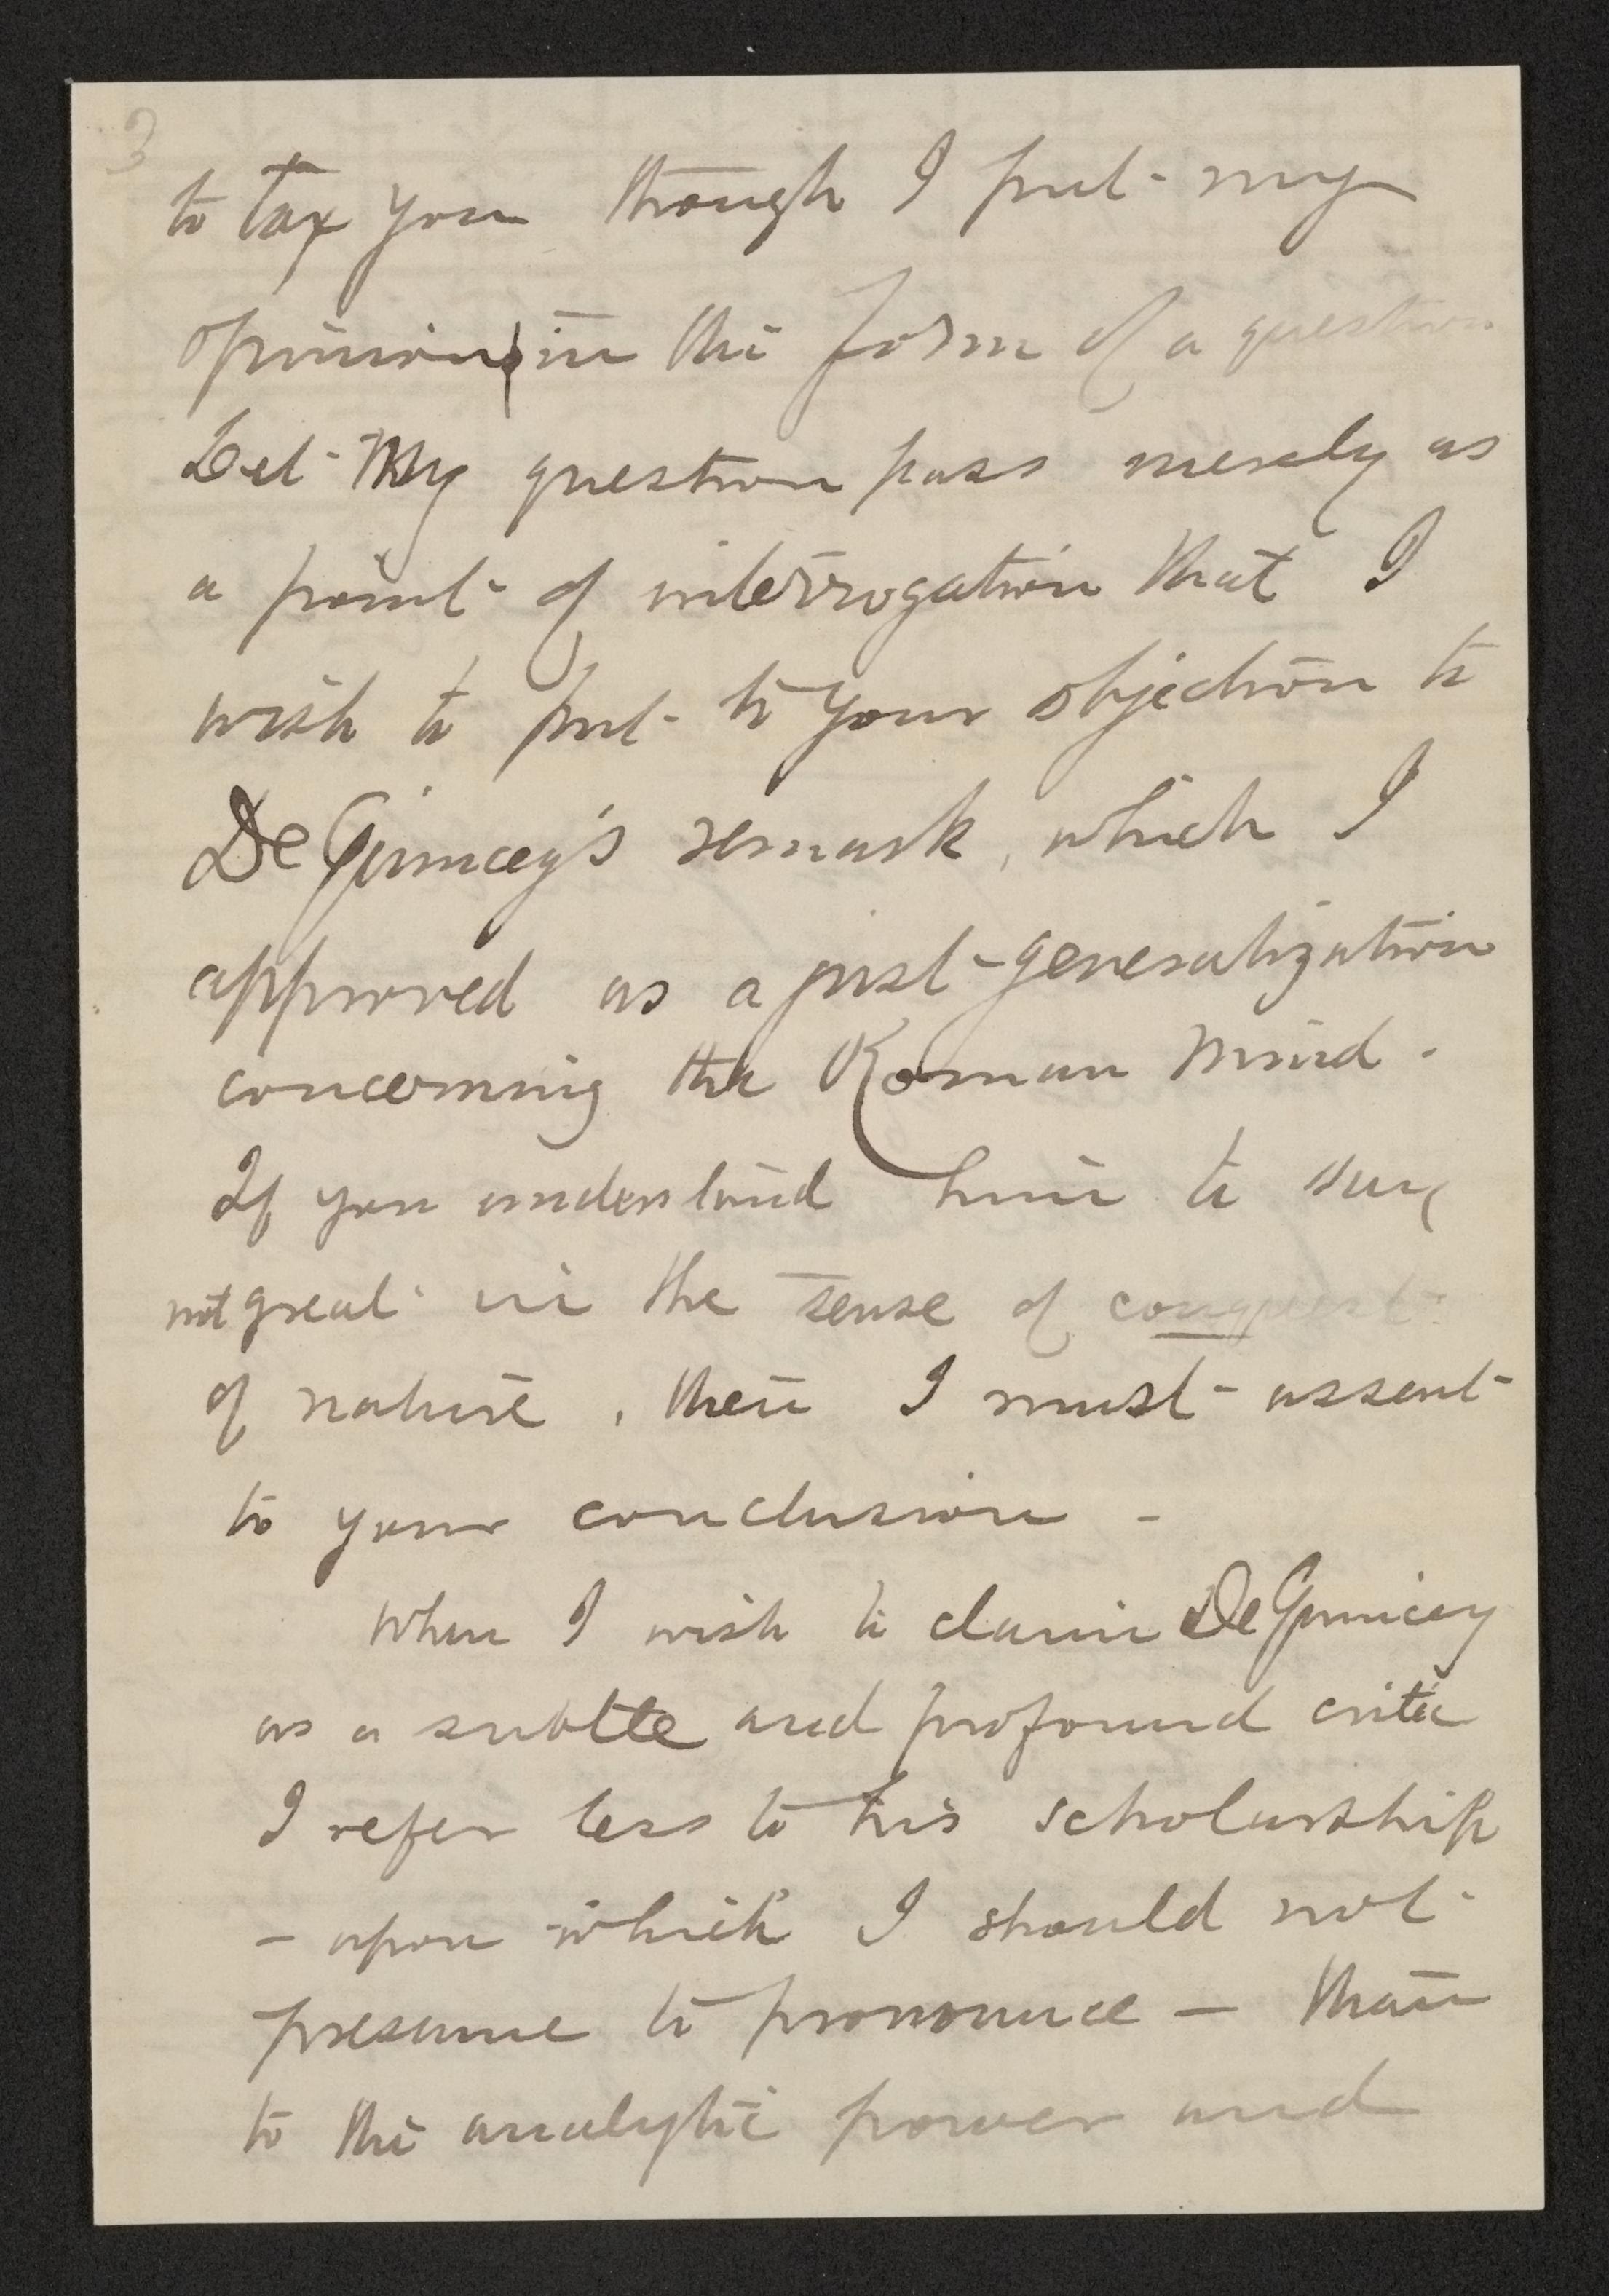 3
to tax you though I put my
opinion in the form of a question
Let My question pass merely as
a point of interrogation that I
wish to put to your objection to
De Quincey's remark, which I
approved as a just generalization
concerning the Roman Mind.
If you understand him to say
not great in the sense of conquest
of nature, then I must assent
to your conclusion -
When I wish to claim De Quincey
as a subtle and profound critic
I refer less to his scholarship
- upon which I should not
presume to pronounce - than
to the analytic power and